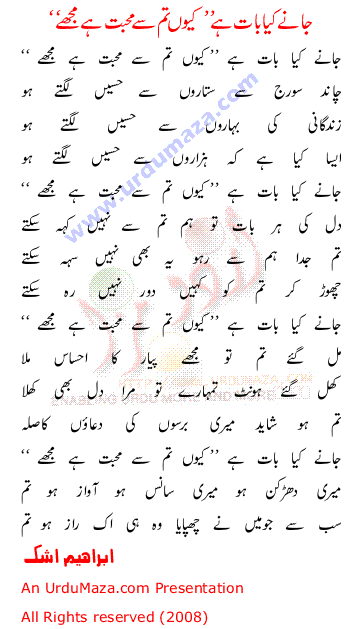 جانے کیا بات ہے ’’ کیوں تم سے محبت ہے مجھے ‘‘
جانے کیا بات ہے ’’ کیوں تم سے محبت ہے مجھے ‘‘
چاند سورج سے ستاروں سے حسیں لگتے ہو
زندگانی کی بہاروں سے حسیں لگتے ہو
ایسا کیا ہے کہ ہزاروں سے حسیں لگتے ہو
جانے کیا بات ہے ’’ کیوں تم سے محبت ہے مجھے ‘‘
دل کی ہر بات تو ہم تم سے نہیں کہہ سکتے
تم جدا ہم سے رہو یہ بھی نہیں سہہ سکتے
چھوڑ کر تم کو کہیں دور نہیں رہ سکتے
جانے کیا بات ہے ’’ کیوں تم سے محبت ہے مجھے ‘‘
مل گئے تم تو مجھے پیار کا احساس ملا
کھل گئے ہونٹ تمہارے تو مرا دل بھی کھلا
تم ہو شاید میری برسوں کی دعاؤں کاصلہ
جانے کیا بات ہے ’’ کیوں تم سے محبت ہے مجھے ‘‘
میری دھڑکن ہو میری سانس ہو آواز ہو تم
سب سے جومیں نے چھپایا وہ ہی اک راز ہو تم
ابراھیم اشک
An UrduMaza.com Presentation
All Rights reserved (2008)
www.urdumaza.com
URDUMAZA.COM